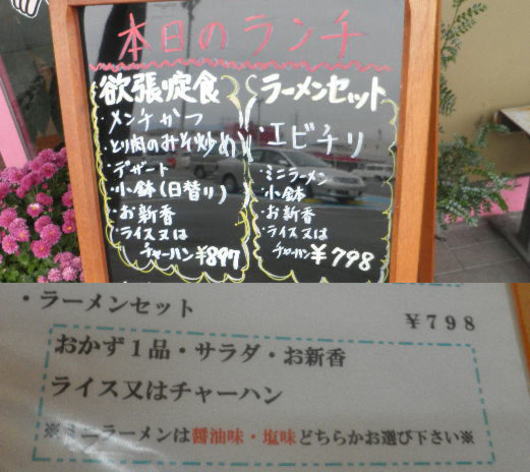 本日のランチ
欲張定食
・メンチかつ
・とり肉のみそ炒め
・デザート
・小鉢(日替り)
・お新香
・ライス又は
チャーハン ¥897
ラーメンセット
・エビチリ
・ミニラーメン
・小鉢
・お新香
・ライス又は
チャーハン ¥798
・ラーメンセット
¥798
おかず1品・サラダ・お新香
ライス又はチャーハン
※ミニラーメンは醤油味・塩味どちらかお選び下さい※